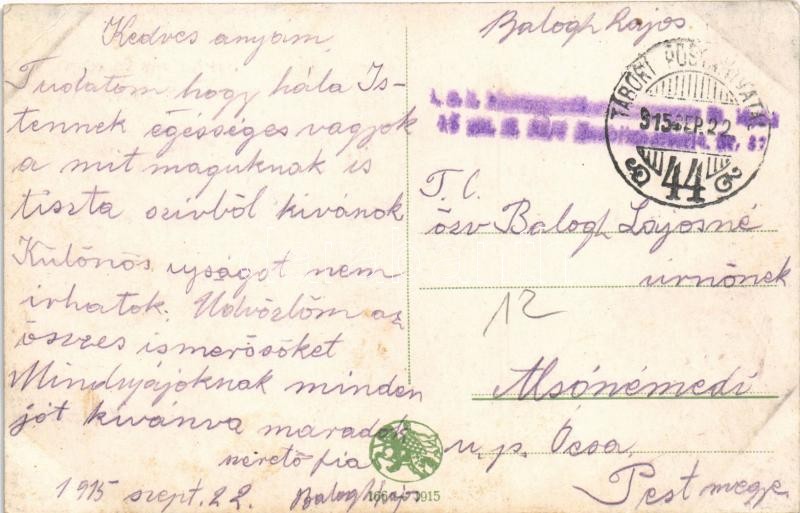 Kedves anyám
Tudatom hogy hála Is-
tennek égésséges vagyok
a mit maguknak is
tiszta szivből kivánok
Külömös ujságot nem
irhatok. Udvözlöm az
öszzes ismerősöket
Mindnyájoknak minden
jót kivánva maradok
szerető fia
1915 szept. 22. Balogh Lajos
Balogh Lajos
TÁBORI POSTAHIVATAL
915 SEP. 22
44
T. C.
özv Balogh Lajosné
úrnőnek
12
Alsónémedi
u. p. Ócsa
Pest megye
1915